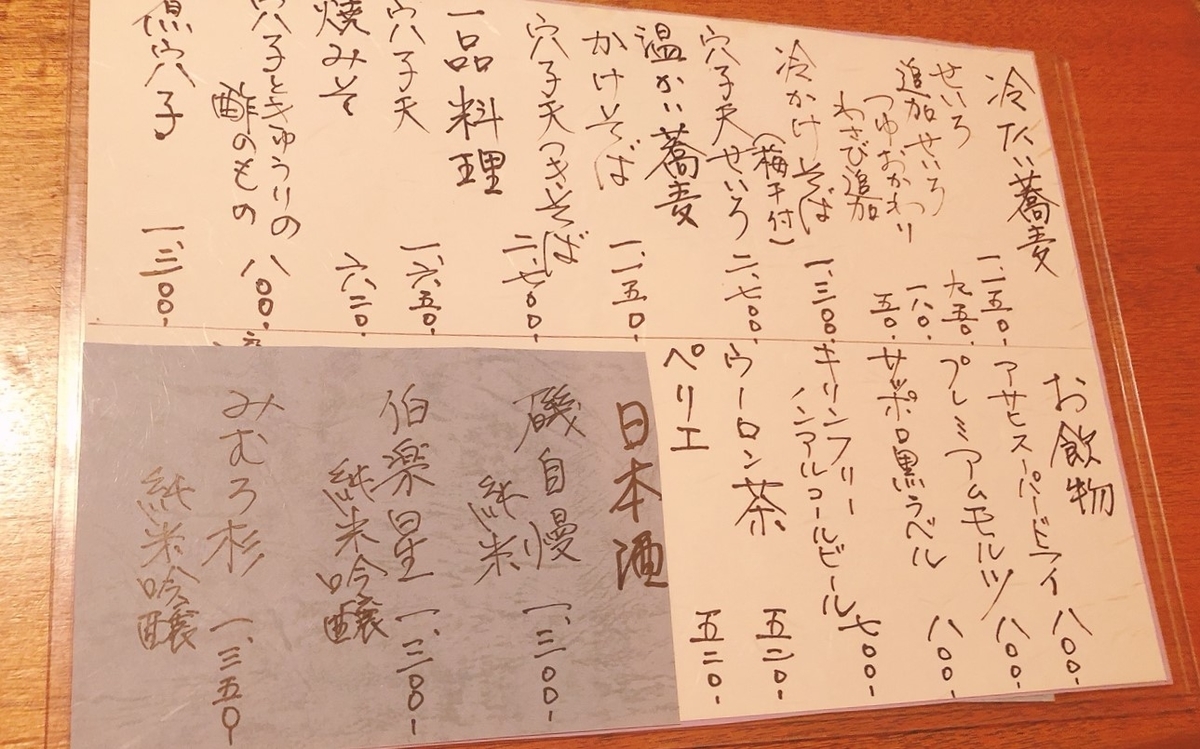 冷たい蕎麦
せいろ 一、一五〇-
追加せいろ 九五〇-
つゆおかわり 一八〇-
わさび追加 五〇-
冷かけそば 一、三〇〇-
(梅干付)
穴子天せいろ 二、七〇〇-
温かい蕎麦
かけそば 一、一五〇-
穴子天つきそば 二、七〇〇-
一品料理
穴子天 一、六五〇-
焼みそ 六二〇-
穴子ときゅうりの
酢のもの 八〇〇-
煮穴子 一、三〇〇-
お飲物
アサヒスーパードライ 八〇〇-
プレミアムモルツ 八〇〇-
サッポロ黒ラベル 八〇〇-
キリンフリー
ノンアルコールビール 七〇〇-
ウーロン茶 五二〇-
ペリエ 五二〇-
日本酒
磯自慢 一、三〇〇-
純米
伯楽星 一、三〇〇-
純米吟醸
みむろ杉 一、三五〇-
純米吟醸